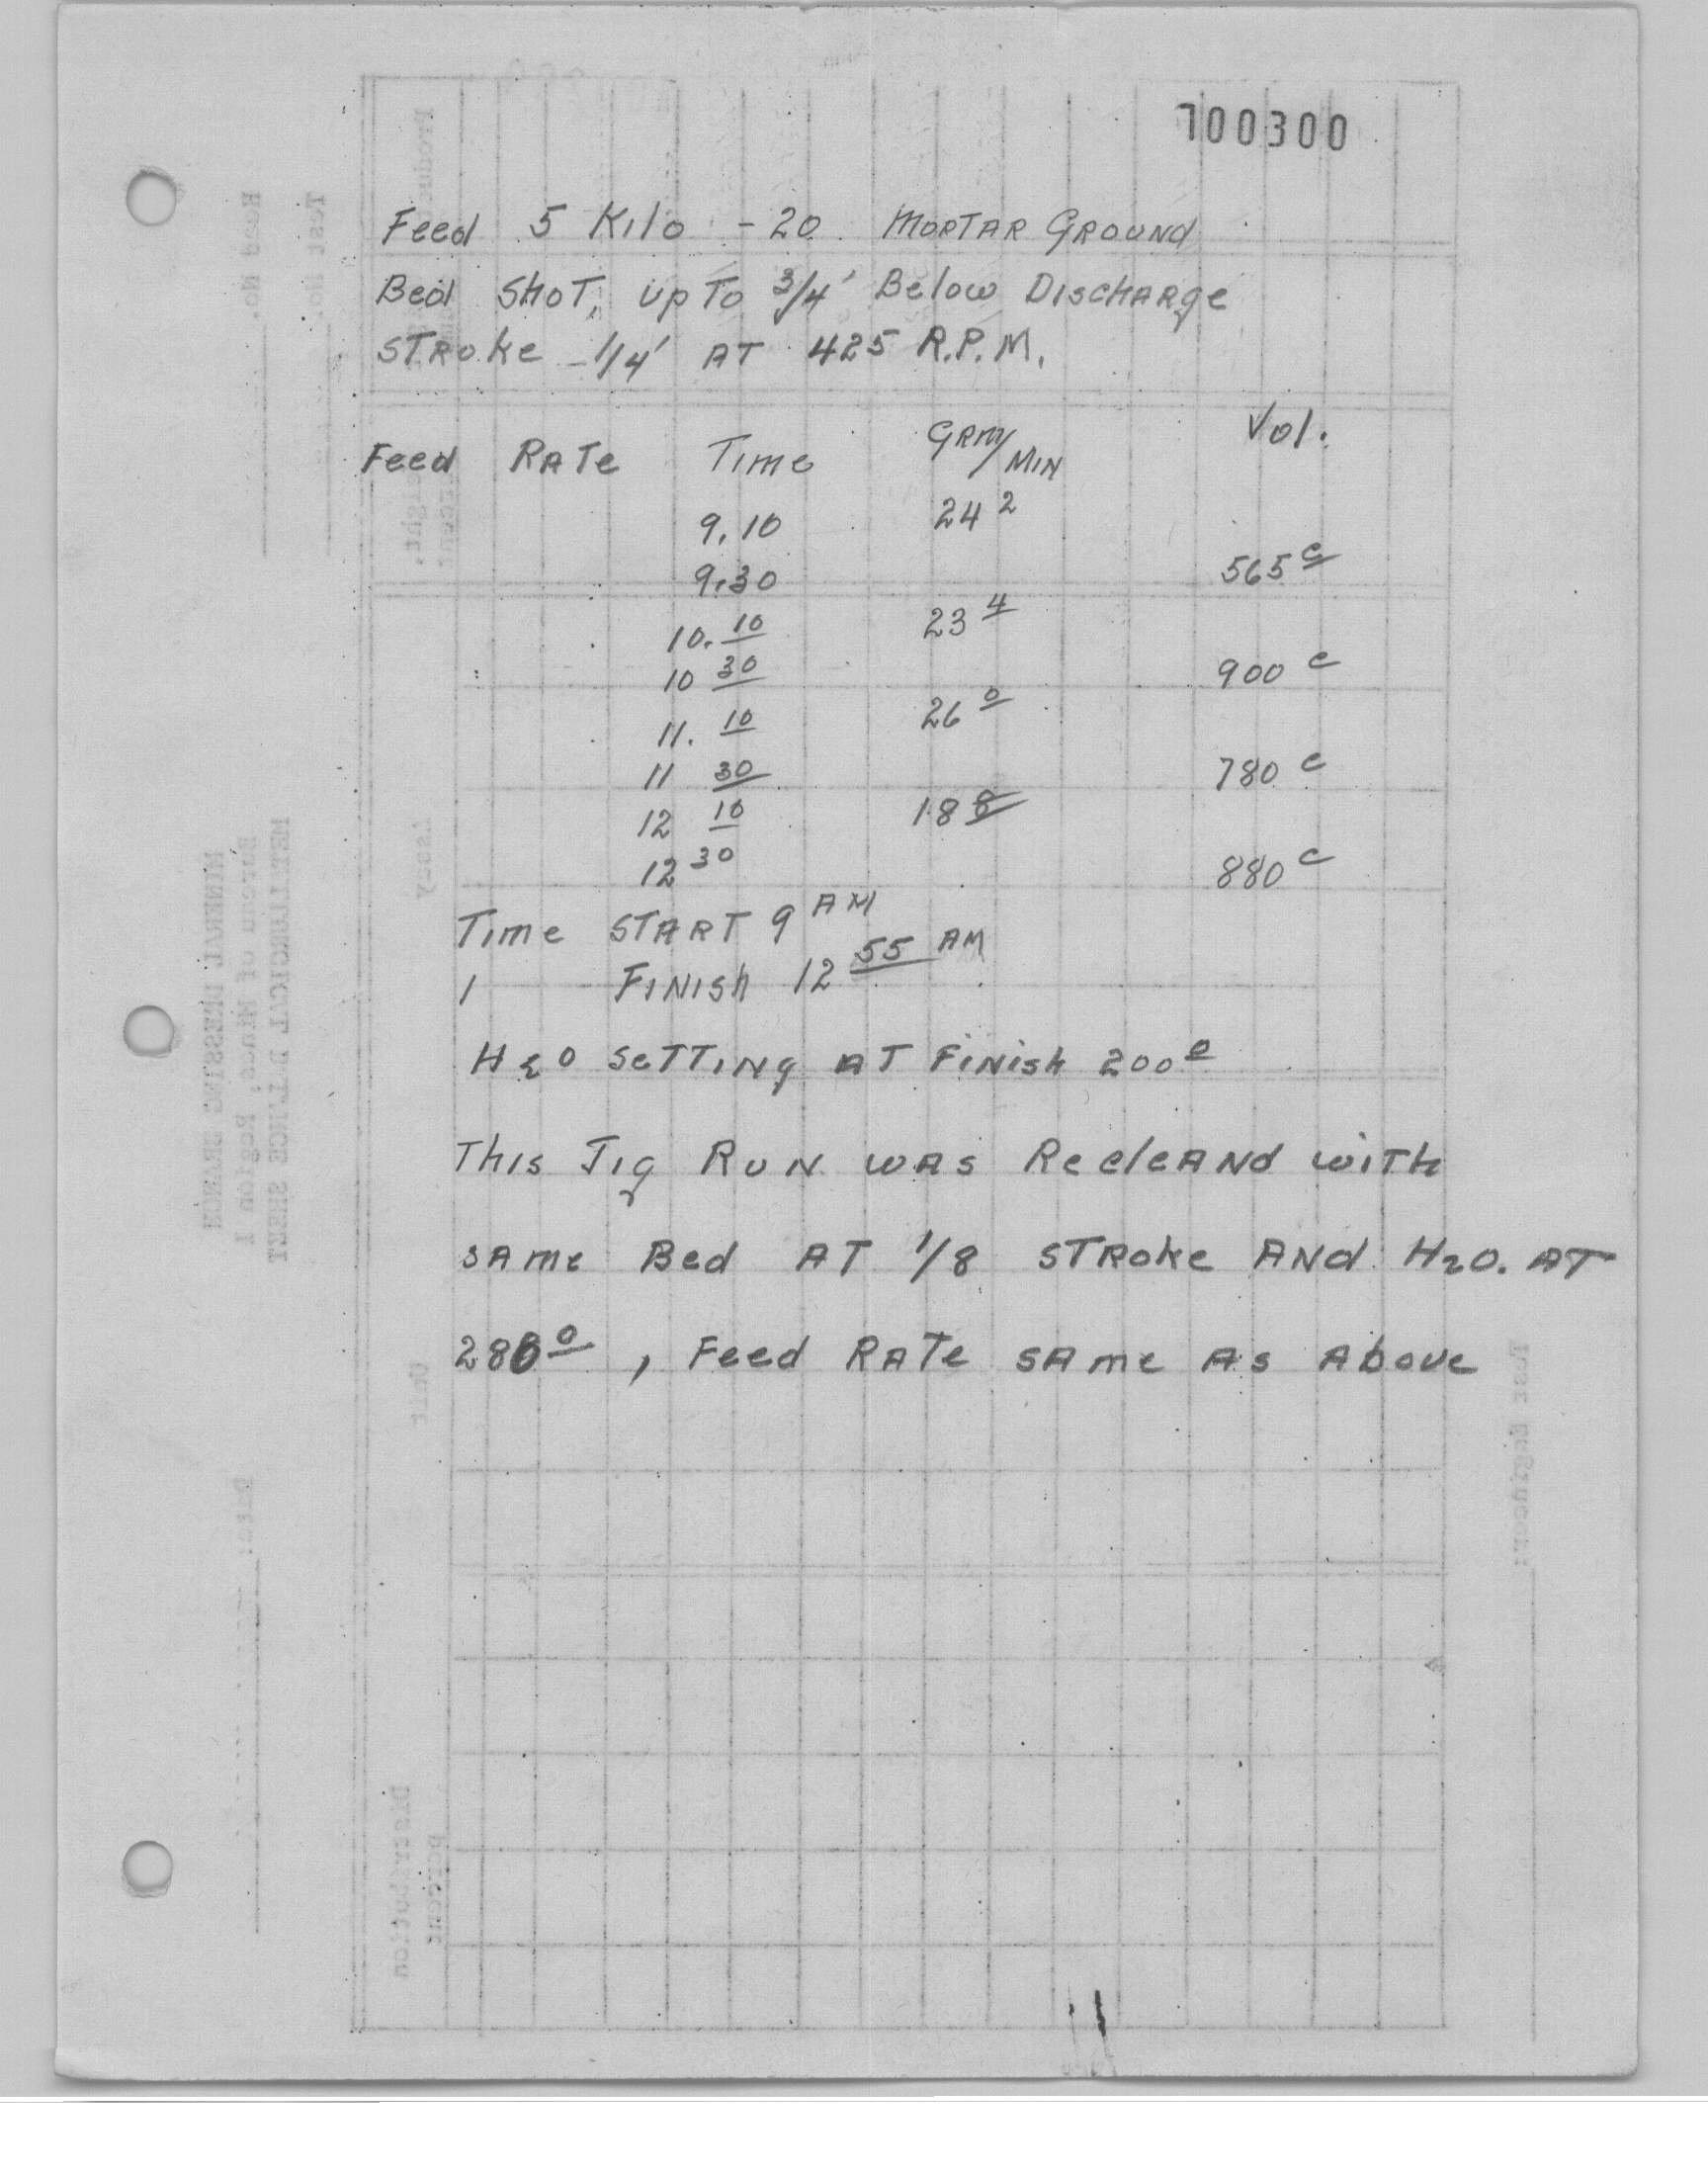 700300
Feed 5 Kilo -20 MORTAR GROUND
Bed SHOT, up To 3/4' Below DISCHARge
STROke 1/4' AT 425 R.P.M.
Feed RATe Time GRM/MIN Vol.
9.10 24 2
9.30 565 c
10.10 23 4
10 30 900 c
11.10 26 0
11 30 780 c
12 10 18 8
12 30 880 c
Time START 9 AM
1 FINISh 12 55 AM
H2O SeTTINg AT FiNish 200 o
THIS JIg RuN wAs RecleANd wiTh
SAme Bed AT 1/8 STRoke AND H2O. AT
280 o, Feed RATe SAme As Above
Test No.
Head No.
Product
Weight
percent
Assay
Unit
Distribution
percent
METALLURGICAL BALANCE SHEET
Bureau of Mines, Region I
MINERAL DRESSING BRANCH
Date:
Test Engineer: